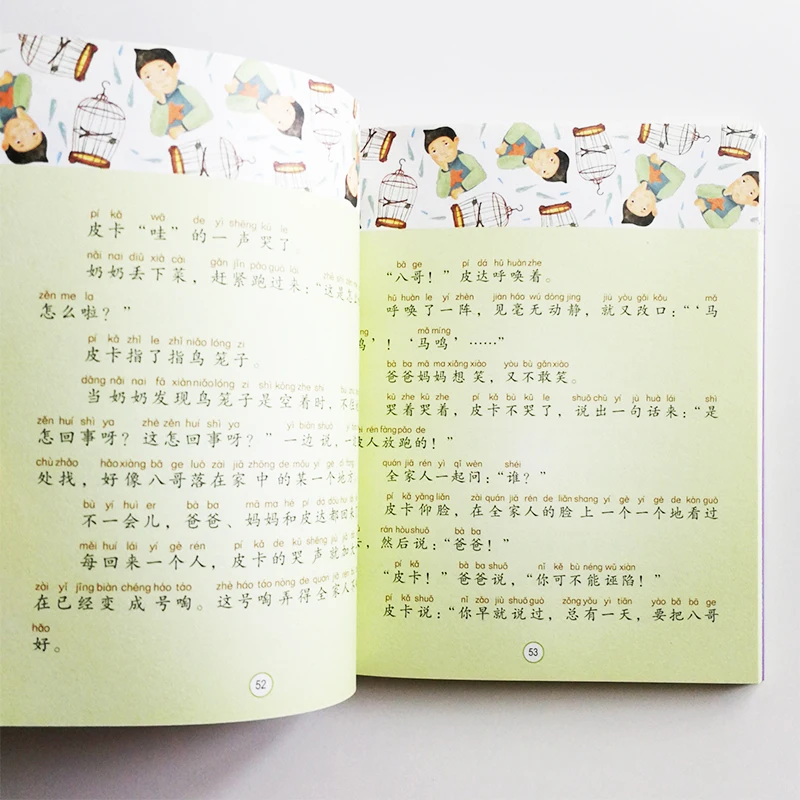 pí kǎ wā de yì shēng kū le
皮卡“哇”的一声哭了。
nǎi nai diū xià cài gǎn jǐn pǎo guò lái
奶奶丢下菜，赶紧跑过来：“这是怎么
zěn me la
怎么啦？”
pí kǎ zhǐ le zhǐ niǎo lóng zi
皮卡指了指鸟笼子。
dāng nǎi nai fā xiàn niǎo lóng zi shì kòng zhe shí
当奶奶发现鸟笼子是空着时，不住
zěn huí shì ya zhè zěn huí shì ya yì biān shuō
怎回事呀？这怎回事呀？”一边说，一
chù zhǎo hǎo xiàng bā ge luò zài jiā zhōng de mǒu yí ge dì fang
处找，好像八哥落在家中的某一个地方
bù yí huìr bà ba mā ma hé pí dá dōu huí
不一会儿，爸爸、妈妈和皮达都回
měi huí lái yí gè rén pí kǎ de kū shēng jiù jiā
每回来一个人，皮卡的哭声就加
zài yǐ jīng biàn chéng háo táo zhè háo táo nòng de quán jiā rén
在已经变成号啕。这号啕弄得全家人
hǎo
好。
52
bā ge pí dá hū huàn zhe
“八哥！”皮达呼唤着。
hū huàn le yí zhèn jiàn háo wú dòng jìng jiù yòu gǎi kǒu mǎ
呼唤了一阵，见毫无动静，就又改口：“‘马
mǎ míng
鸣’！‘马鸣’……”
bà ba mā ma xiǎng xiào yòu bù gǎn xiào
爸爸妈妈想笑，又不敢笑。
kū zhe kū zhe pí kǎ bù kū le shuō chū yí jù huà lái shì
哭着哭着，皮卡不哭了，说出一句话来：“是
bèi rén fàng pǎo de
被人放跑的！”
quán jiā rén yì qǐ wèn shéi
全家人一起问：“谁？”
pí kǎ yǎng liǎn zài quán jiā rén de liǎn shang yí gè yí gè de kàn guò
皮卡仰脸，在全家人的脸上一个一个地看过
rán hòu shuō bà ba
，然后说：“爸爸！”
pí kǎ bà ba shuō nǐ kě bù néng wū xiàn
“皮卡！”爸爸说，“你可不能诬陷！”
pí kǎ shuō nǐ zǎo jiù shuō guò zǒng yǒu yì tiān yào bǎ bā ge
皮卡说：“你早就说过，总有一天，要把八哥
53